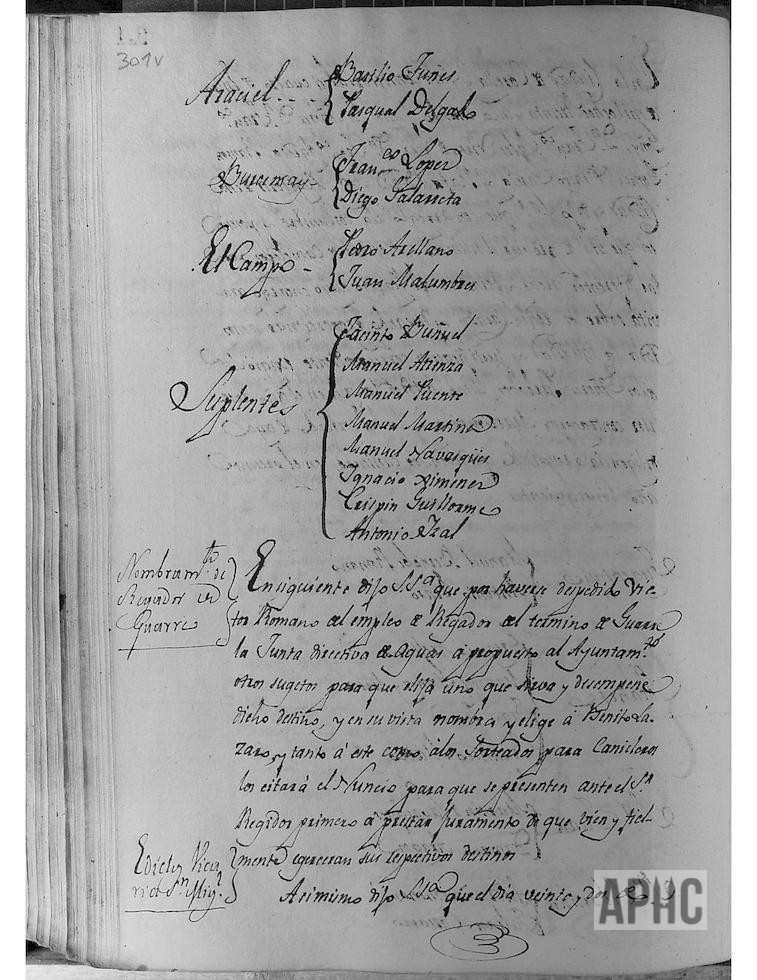 301v
Araciel . . .
Basilio Funes
Pasqual Delgado
Burcemay -
Fran.co Lopez
Diego Galarreta
El Campo -
Pedro Arellano
Juan Malumbres
Suplentes
Jacinto Buñuel
Manuel Atienza
Manuel Puente
Manuel Martinez
Manuel Navasques
Ignacio Ximenez
Crispin Guillorme
Antonio Izal
Nombram.to de
Regador de
Guarre
En siguiente dijo S.Sa que por haverse despedido Vic-
tor Romano del empleo de Regador del termino de Guarre
la Junta directiva de aguas á propuesto al Ayuntam.to
otros sugetos para que elija uno que sirva y desempeñe
dicho destino, y en su vista nombra y elige á Benito La-
zaro, y tanto á este como álos Sorteados para Canieleros
los citará el Nuncio para que se presenten ante el S.r
Regidor primero á prestar Juramento de que vien y fiel-
mente egerceran sus respectivos destinos
Asimismo dijo S.Sa que el dia veinte y dos de
APHC